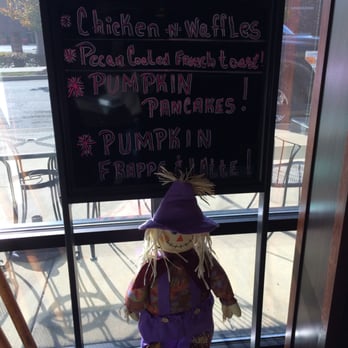 * Chicken N Waffles
* Pecan Coated French toast!
* PUMPKIN
PANCAKES!
* PUMPKIN
FRAPPE & LATTE!